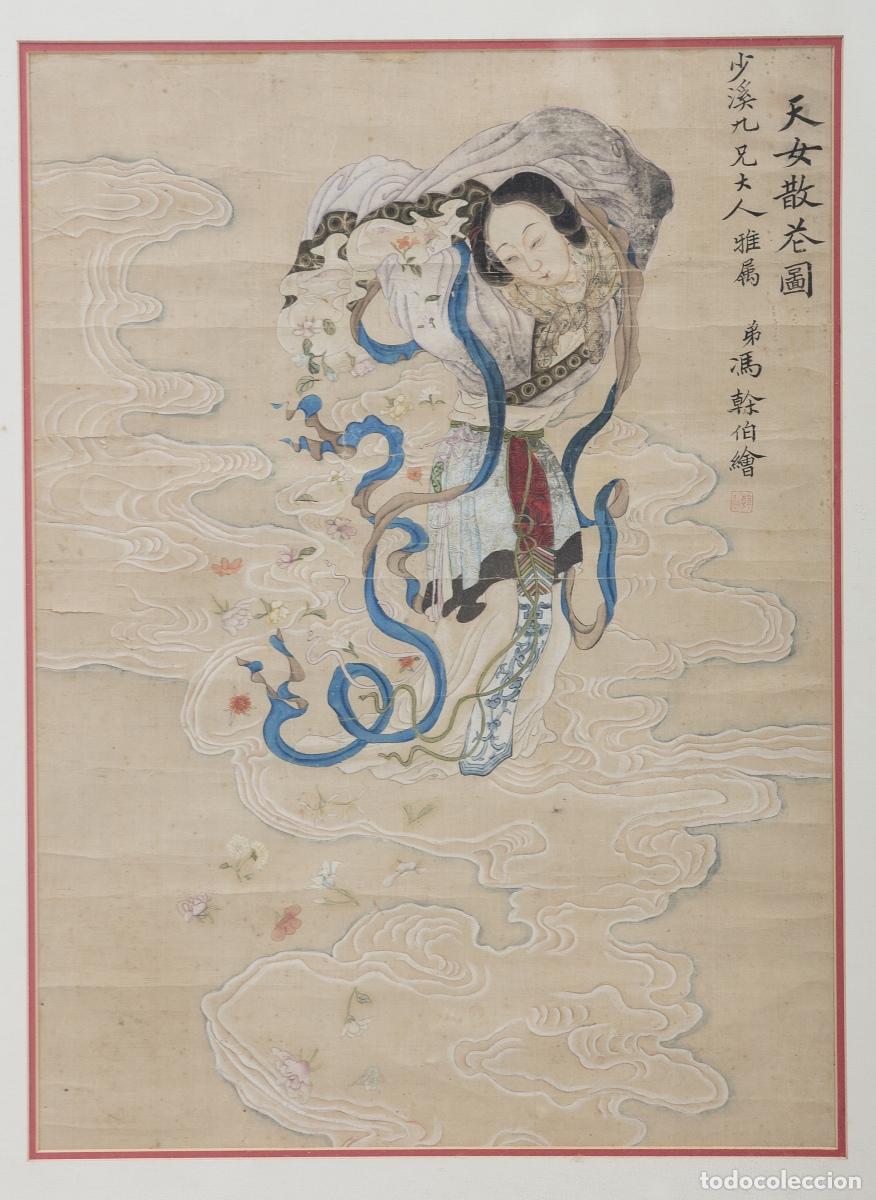 天女散花圖
少溪九兄大人雅属
弟馮榦伯繪
todocoleccion